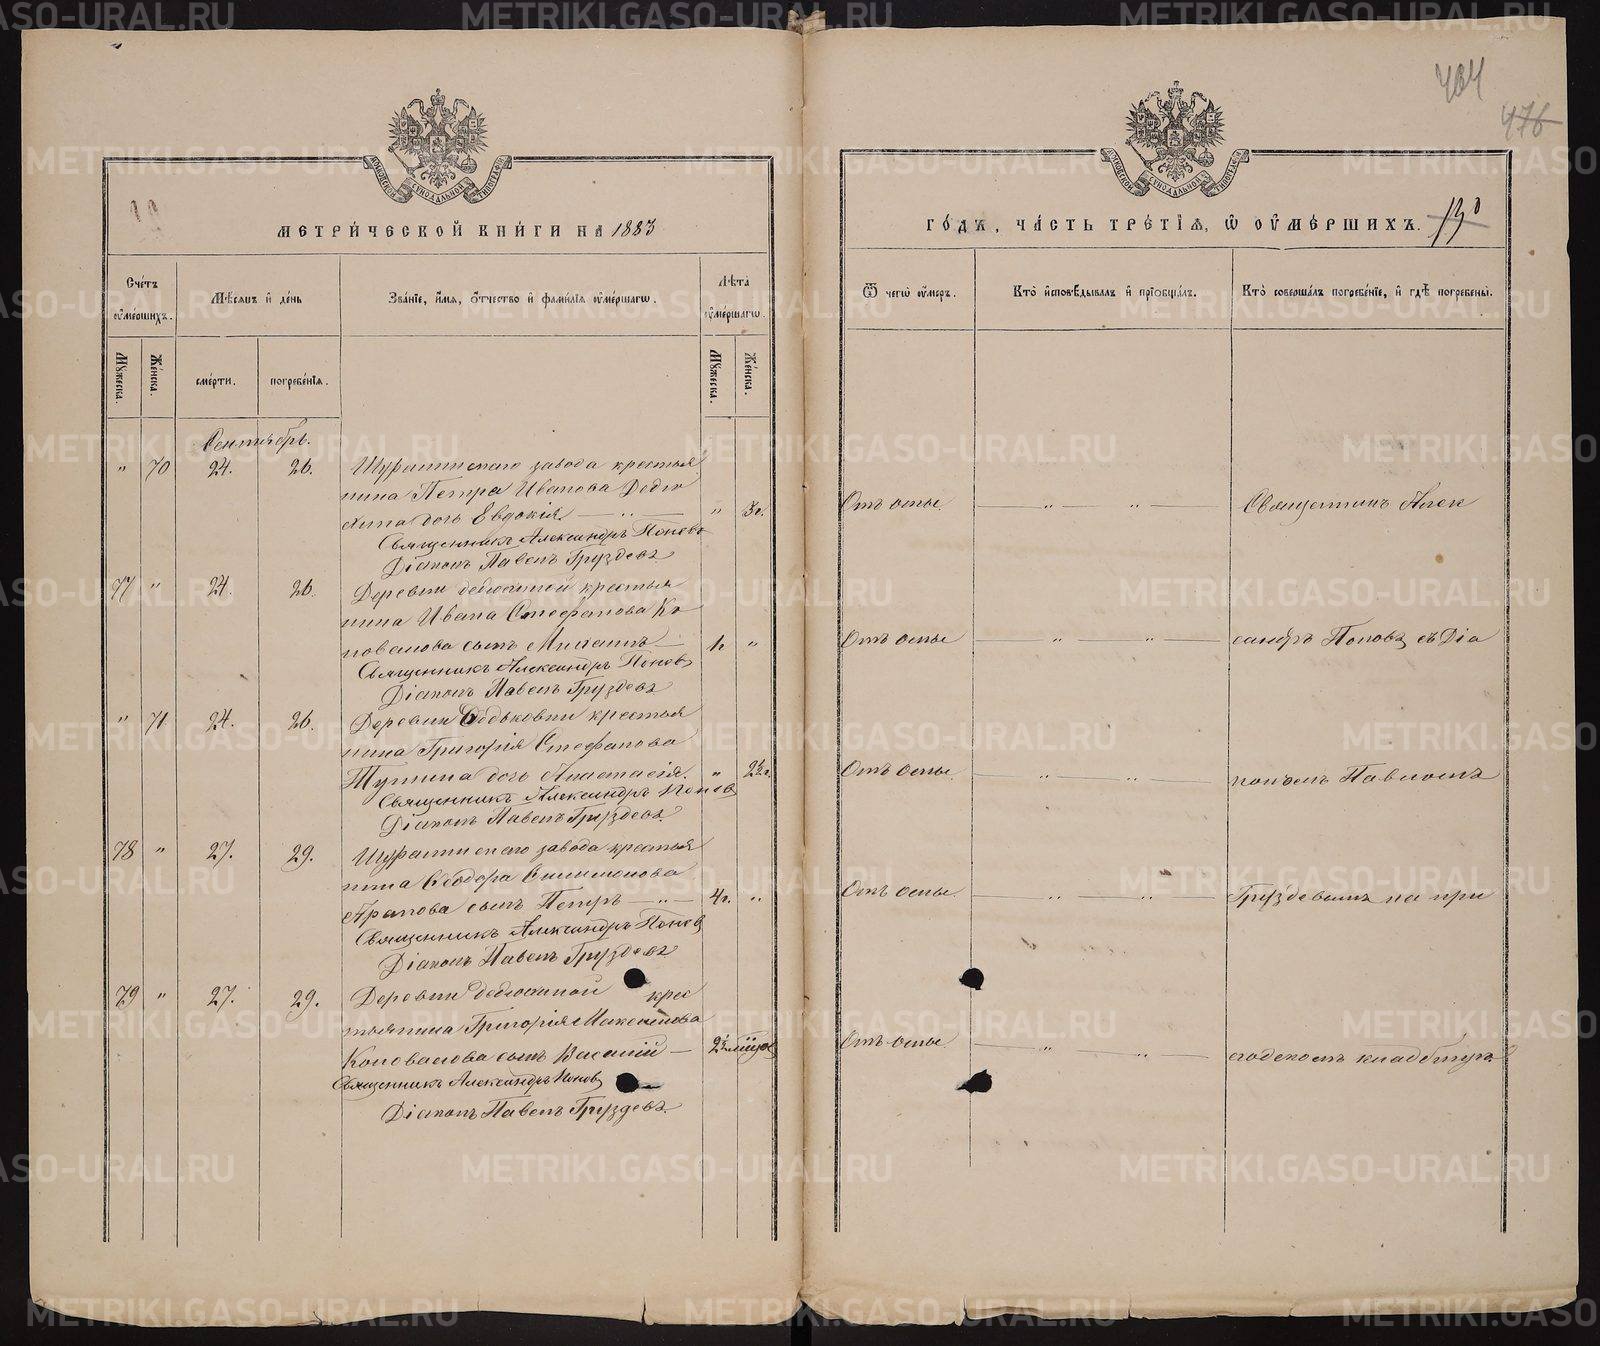 МЕТРИ́ЧЕСКОЙ КНИ́ГИ НА 1883
Сче́тъ ᲂу҆ме́ршихъ.
Мѣ́сяцъ и҆ де́нь
Зва́нїе, и҆́мя, ѻ҆́тчество и҆ фами́лїя ᲂу҆ме́ршагѡ.
Лѣ́та ᲂу҆ме́ршагѡ.
Мꙋ́жеска.
Же́нска.
сме́рти.
погребе́нїя.
Мꙋ́жеска.
Же́нска.
Сентябрь.
" 70 24. 26. Шуралинскаго завода крестья
нина Петра Иванова Дедю
хина дочь Евдокія. — " — " 3г.
Священникъ Александръ Поповъ
Діаконъ Павелъ Груздевъ
77 " 24. 26. Деревни дедюхиной крестья
нина Ивана Стефанова Ко
новалова сынъ Михаилъ "
Священникъ Александръ Поповъ
Діаконъ Павелъ Груздевъ
" 71. 24. 26. Деревни крестья
нина Григорія Стефанова
дочь Анастасія. " 2½г.
Священникъ Александръ Поповъ
Діаконъ Павелъ Груздевъ.
78 " 27. 29. Шуралинскаго завода крестья
нина Ѳеодора
Арапова сынъ Петръ — " — 4г. "
Священникъ Александръ Поповъ
Діаконъ Павелъ Груздевъ
79 " 27. 29. Деревни дедюхиной крес
тьянина Григорія Максимова
Коновалова сынъ Василій — 2½ мѣся
Священникъ Александръ Поповъ
Діаконъ Павелъ Груздевъ.
404
476
ГО́ДЪ, ЧА́СТЬ ТРЕ́ТЇЯ, Ѡ҆ ОУ҆МЕ́РШИХЪ. 130
Ѿ чегѡ̀ ᲂу҆́меръ.
Кто̀ и҆сповѣ́дывалъ и҆ прїѡбща́лъ.
Кто̀ соверша́лъ погребе́нїе, и҆ гдѣ̀ погребены̀.
Отъ оспы. — " — " — Священникъ Алек
Отъ оспы — " — " — сандръ Поповъ съ Діа
Отъ оспы. — " — " — кономъ Павломъ
Отъ оспы. — " — " — Груздевымъ на при
Отъ оспы. — " — " — ходскомъ кладбищѣ.